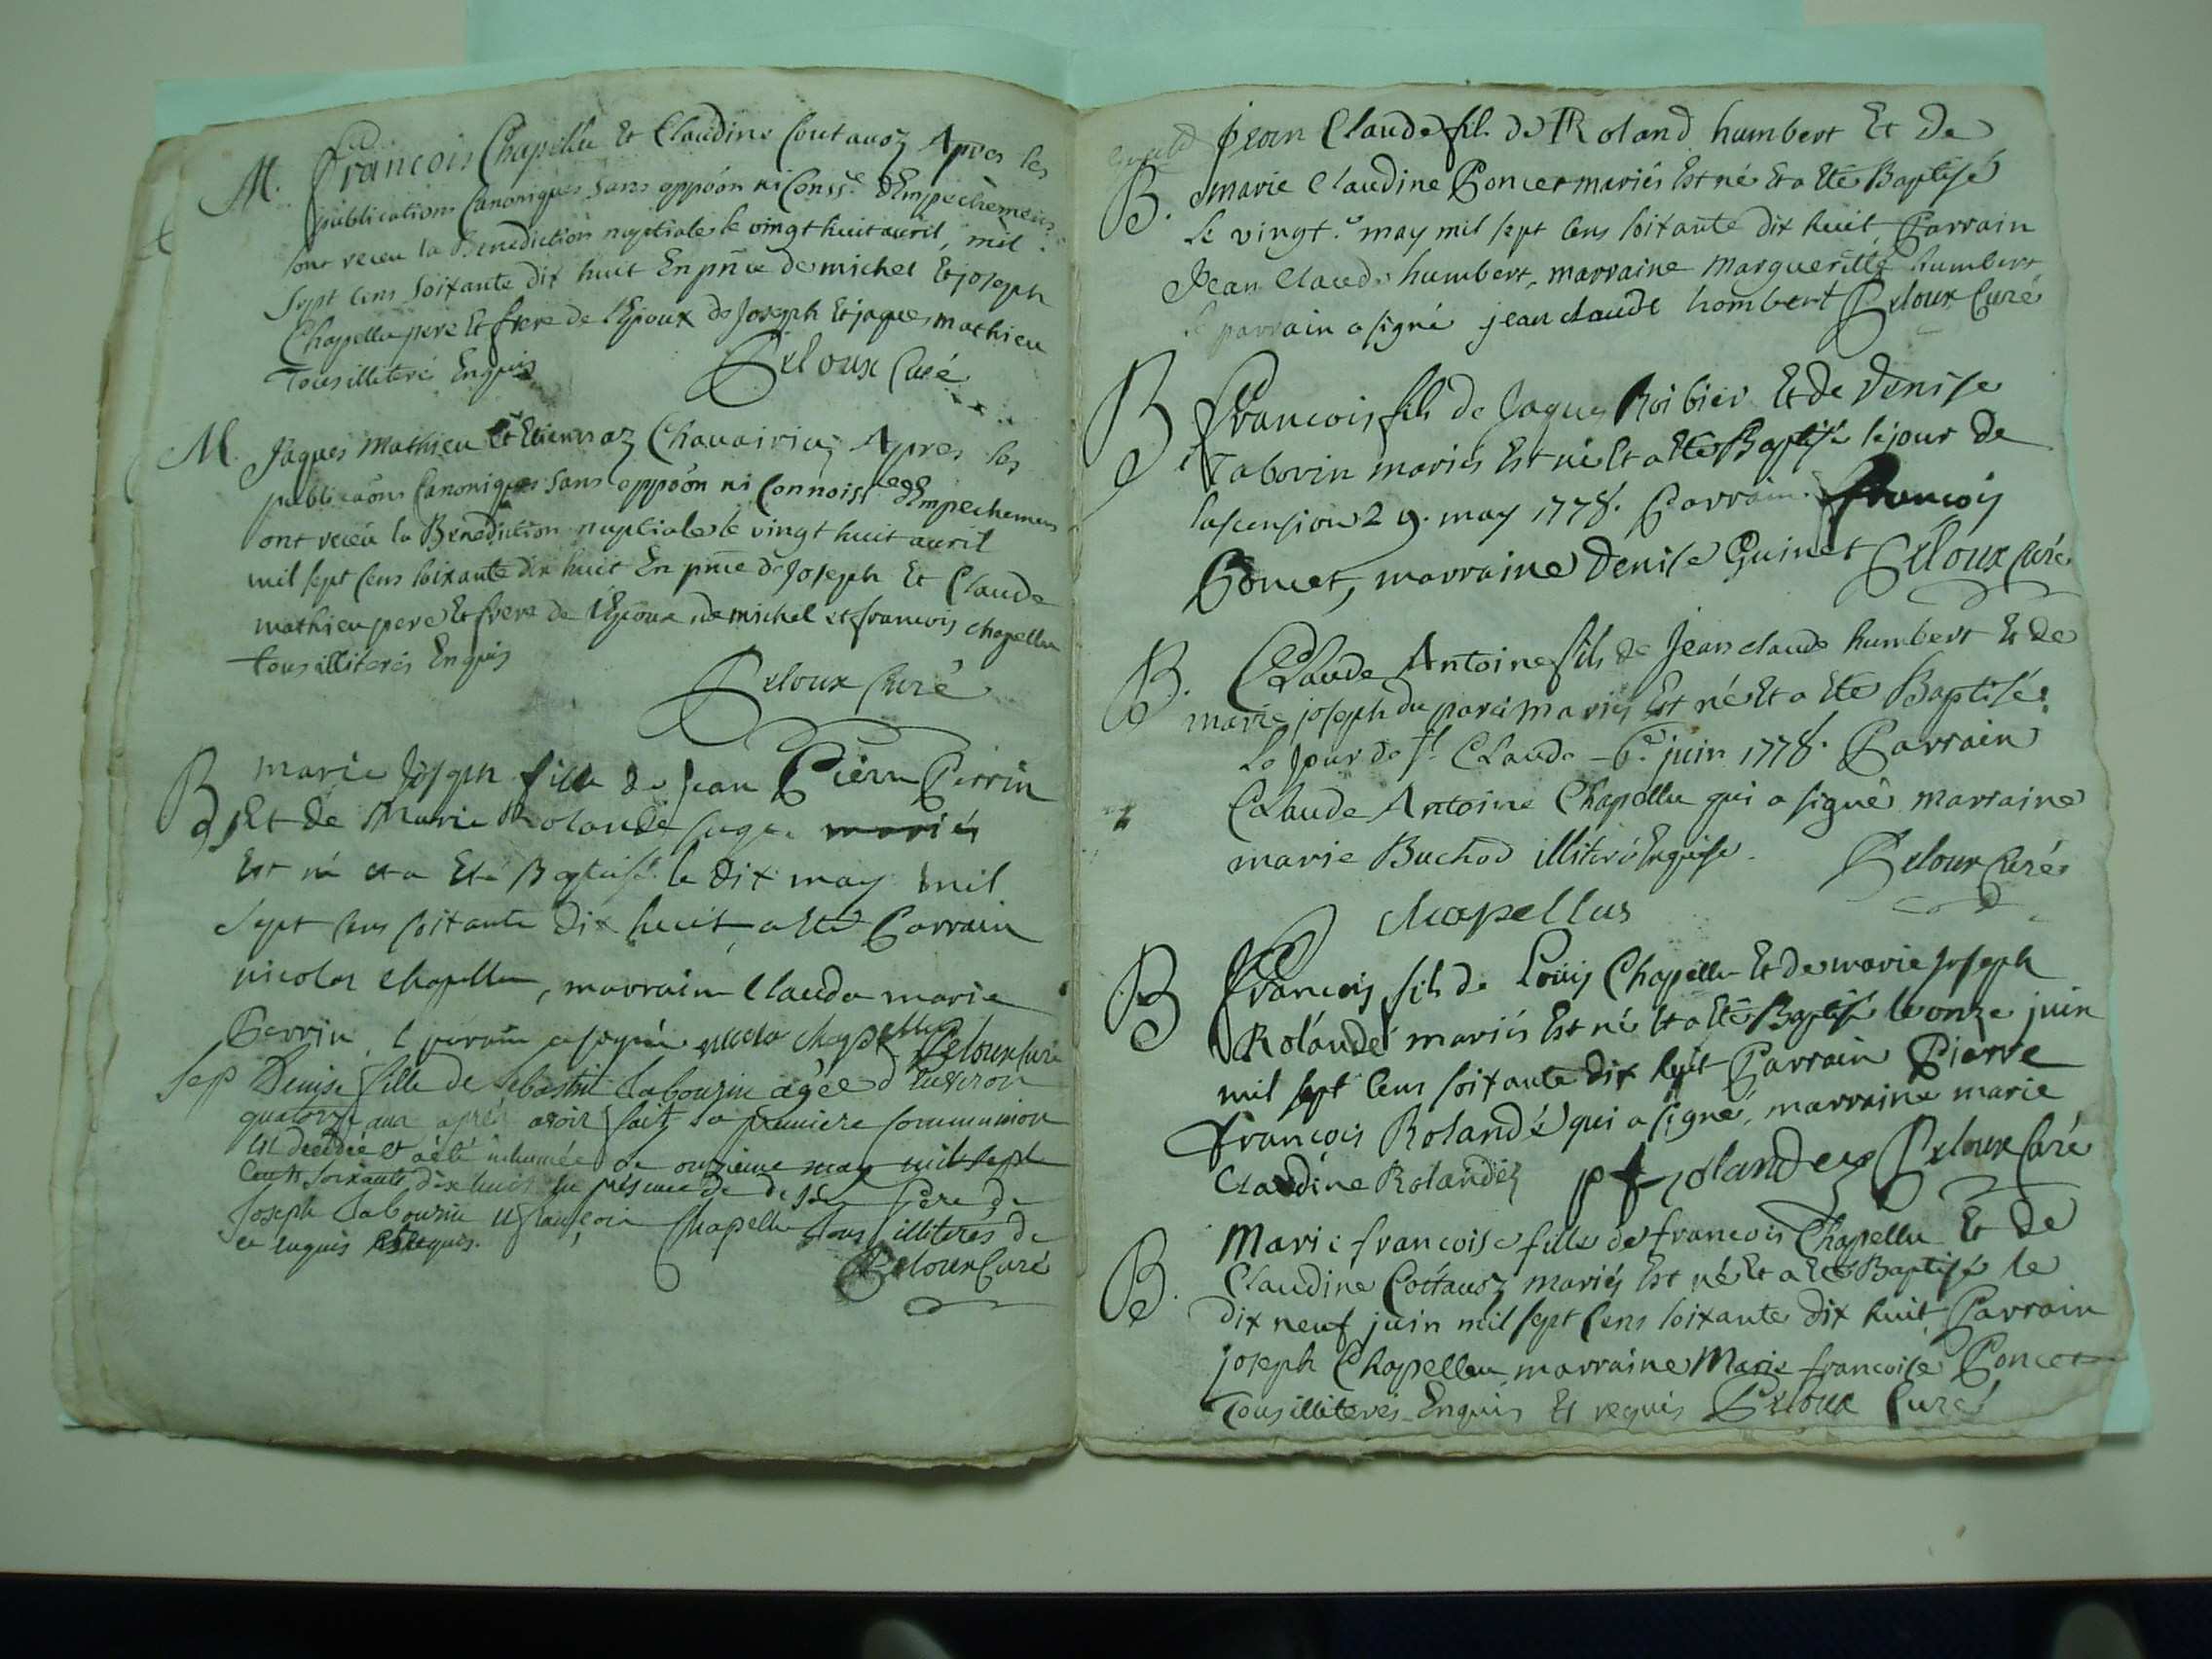 M. francois Chapellu Et Claudine Coutauoz Apres les
publications Canoniques sans oppôon ni Conss.e dEmpechemens
ont receu la Benediction nuptiale le vingt huit avril, mil
sept cens soixante dix huit En pñce de michel Et joseph
Chapellu pere Et frere de lEpoux de Joseph Et jaques mathieu
Tous illiterés Enquis
Peloux Curé
M. Jaques Mathieu Et Chavairiaz Apres les
publicaôns Canoniques sans oppôon ni Connoiss.ce dEmpechemens
ont receu la Benediction nuptiale le vingt huit avril
mil sept cens soixante dix huit En pñce de Joseph Et Claude
mathieu pere Et frere de lEpoux de michel et francois chapellu
tous illiterés Enquis
Peloux Curé
B marie Joseph fille de Jean Pierre Perrin
Et de Marie Rolande mariés
Est né et a Eté Baptisé le dix may mil
sept cens soixante dix huit, a Eté Parrain
nicolas Chapellu, marraine Claude marie
Perrin, l parain a signé nicola chapellu Peloux Curé
sep Denise fille de Sebastin Tabourin agée d'Environ
quatorze ans après avoir fait sa premiere communion
est decedée et a été inhumée le onzieme may mil sept
cent soixante dix huit en présence de de son Pere de
Joseph Tabourin et françois Chapellu tous illiterés de
ce enquis requis.
Peloux Curé
B. Jean Claude fils de Roland humbert Et de
marie Claudine Poncet mariés Est né Et a Eté Baptisé
Le vingt.e may mil sept cens soixante dix huit Parrain
Jean Claude humbert, marraine Margueritte humbert
Le parrain a signé jean claude hombert Peloux Curé
B francois fils de Jaques Roibier Et de Denise
Taborin mariés Est né Et a Eté Baptisé le jour de
lascension 29. may 1778. Parrain francois
Poncet, marraine Denise Guinet Peloux Curé
B. Claude Antoine fils de Jean claude humbert Et de
marie joseph du parc mariés Est né Et a Eté Baptisé
Le Jour de st Claude 6.e juin 1778. Parrain
Claude Antoine Chapellu qui a signé marraine
marie Buchod illiteré Enquise. Peloux Curé
chapellus
B francois fils de Louis Chapellu Et de marie Joseph
Rolandé mariés Est né Et a Eté Baptisé le onze juin
mil sept cens soixante dix huit Parrain Pierre
françois Rolandé qui a signé, marraine marie
Claudine Rolandez pf rolandez Peloux Curé
B. Marie francoise fille de francois Chapellu Et de
Claudine Cottauoz mariés Est né Et a Eté Baptisé le
dix neuf juin mil sept cens soixante dix huit Parrain
joseph Chapellu marraine Marie francoise Poncet
Tous illiterés Enquis Et requis Peloux Curé